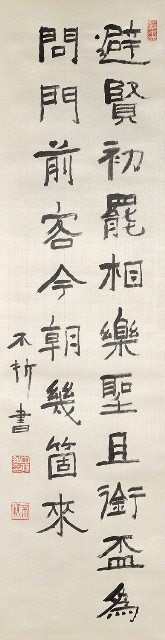 避賢初罷相樂聖且銜盃為
問門前客今朝幾箇來
不折書